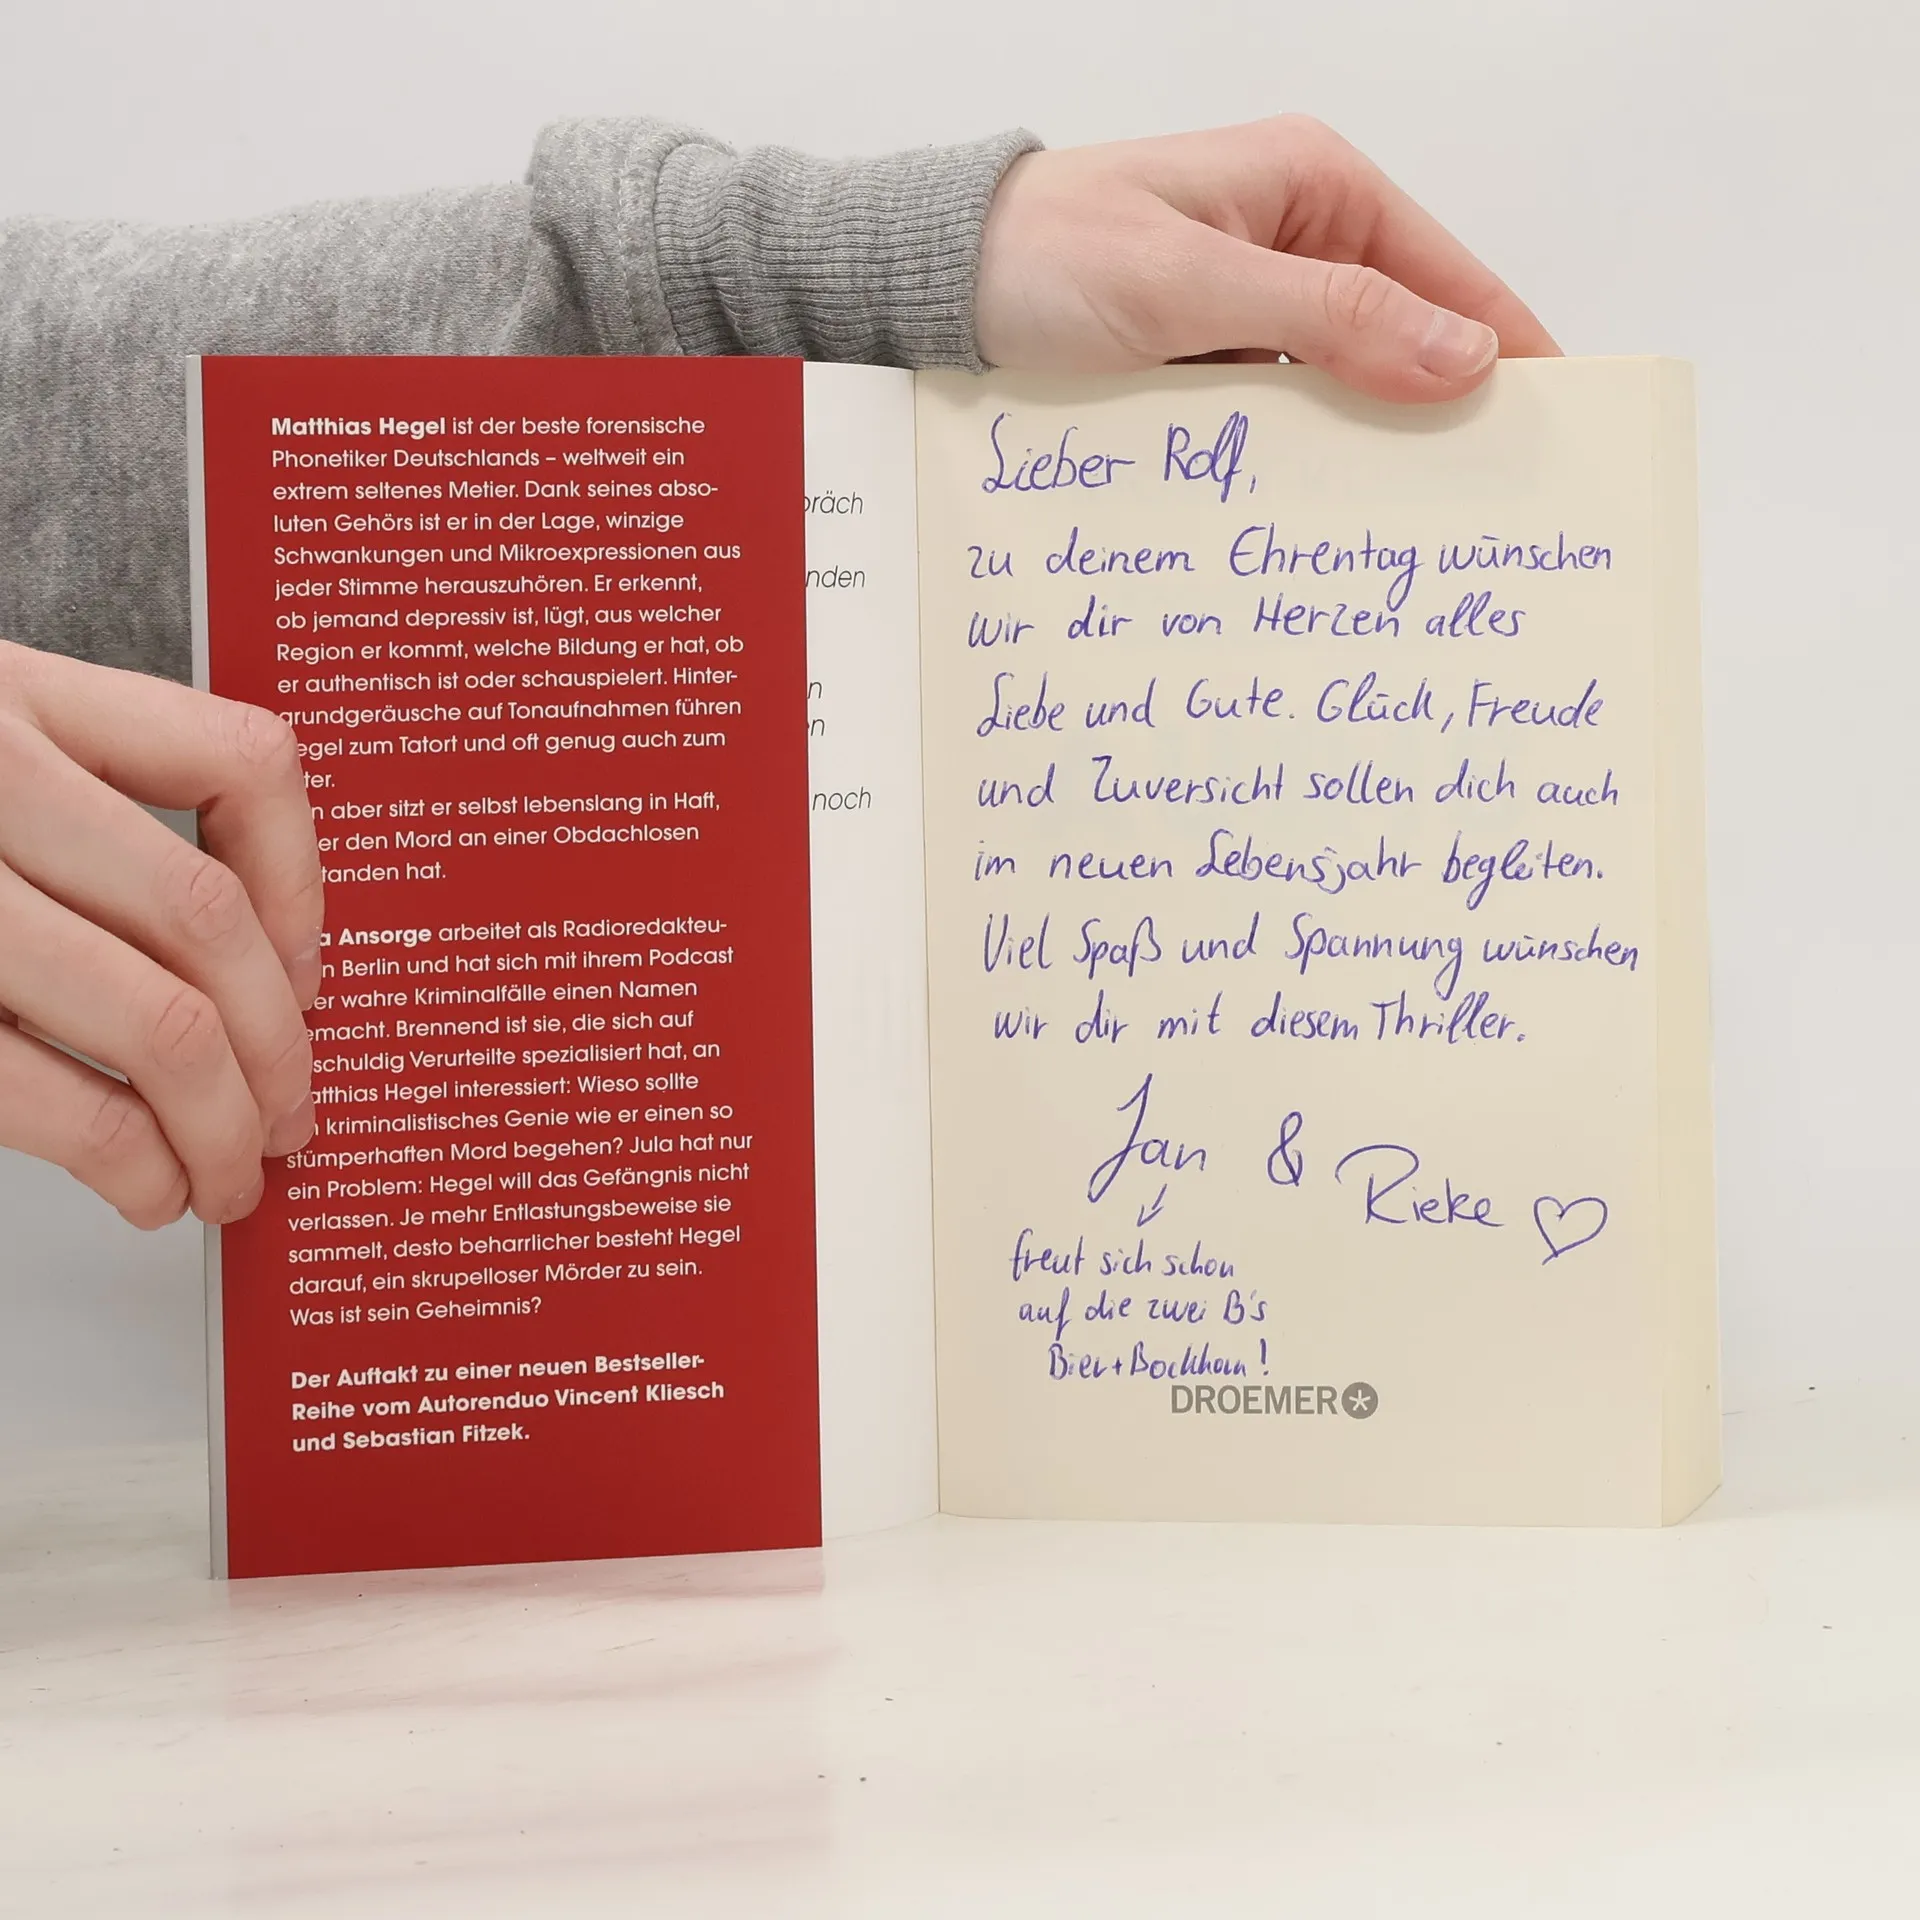 Matthias Hegel ist der beste forensische
Phonetiker Deutschlands – weltweit ein
extrem seltenes Metier. Dank seines abso-
luten Gehörs ist er in der Lage, winzige
Schwankungen und Mikroexpressionen aus
jeder Stimme herauszuhören. Er erkennt,
ob jemand depressiv ist, lügt, aus welcher
Region er kommt, welche Bildung er hat, ob
er authentisch ist oder schauspielert. Hinter-
grundgeräusche auf Tonaufnahmen führen
egel zum Tatort und oft genug auch zum
ter.
n aber sitzt er selbst lebenslang in Haft,
er den Mord an einer Obdachlosen
tanden hat.
a Ansorge arbeitet als Radioredakteu-
n Berlin und hat sich mit ihrem Podcast
er wahre Kriminalfälle einen Namen
emacht. Brennend ist sie, die sich auf
schuldig Verurteilte spezialisiert hat, an
atthias Hegel interessiert: Wieso sollte
n kriminalistisches Genie wie er einen so
stümperhaften Mord begehen? Jula hat nur
ein Problem: Hegel will das Gefängnis nicht
verlassen. Je mehr Entlastungsbeweise sie
sammelt, desto beharrlicher besteht Hegel
darauf, ein skrupelloser Mörder zu sein.
Was ist sein Geheimnis?
Der Auftakt zu einer neuen Bestseller-
Reihe vom Autorenduo Vincent Kliesch
und Sebastian Fitzek.
präch
nden
n
n
noch
Lieber Rolf,
zu deinem Ehrentag wünschen
wir dir von Herzen alles
Liebe und Gute. Glück, Freude
und Zuversicht sollen dich auch
im neuen Lebensjahr begleiten.
Viel Spaß und Spannung wünschen
wir dir mit diesem Thriller.
Jan & Rieke
freut sich schon
auf die zwei B's
Bier+Bockhorn!
DROEMER